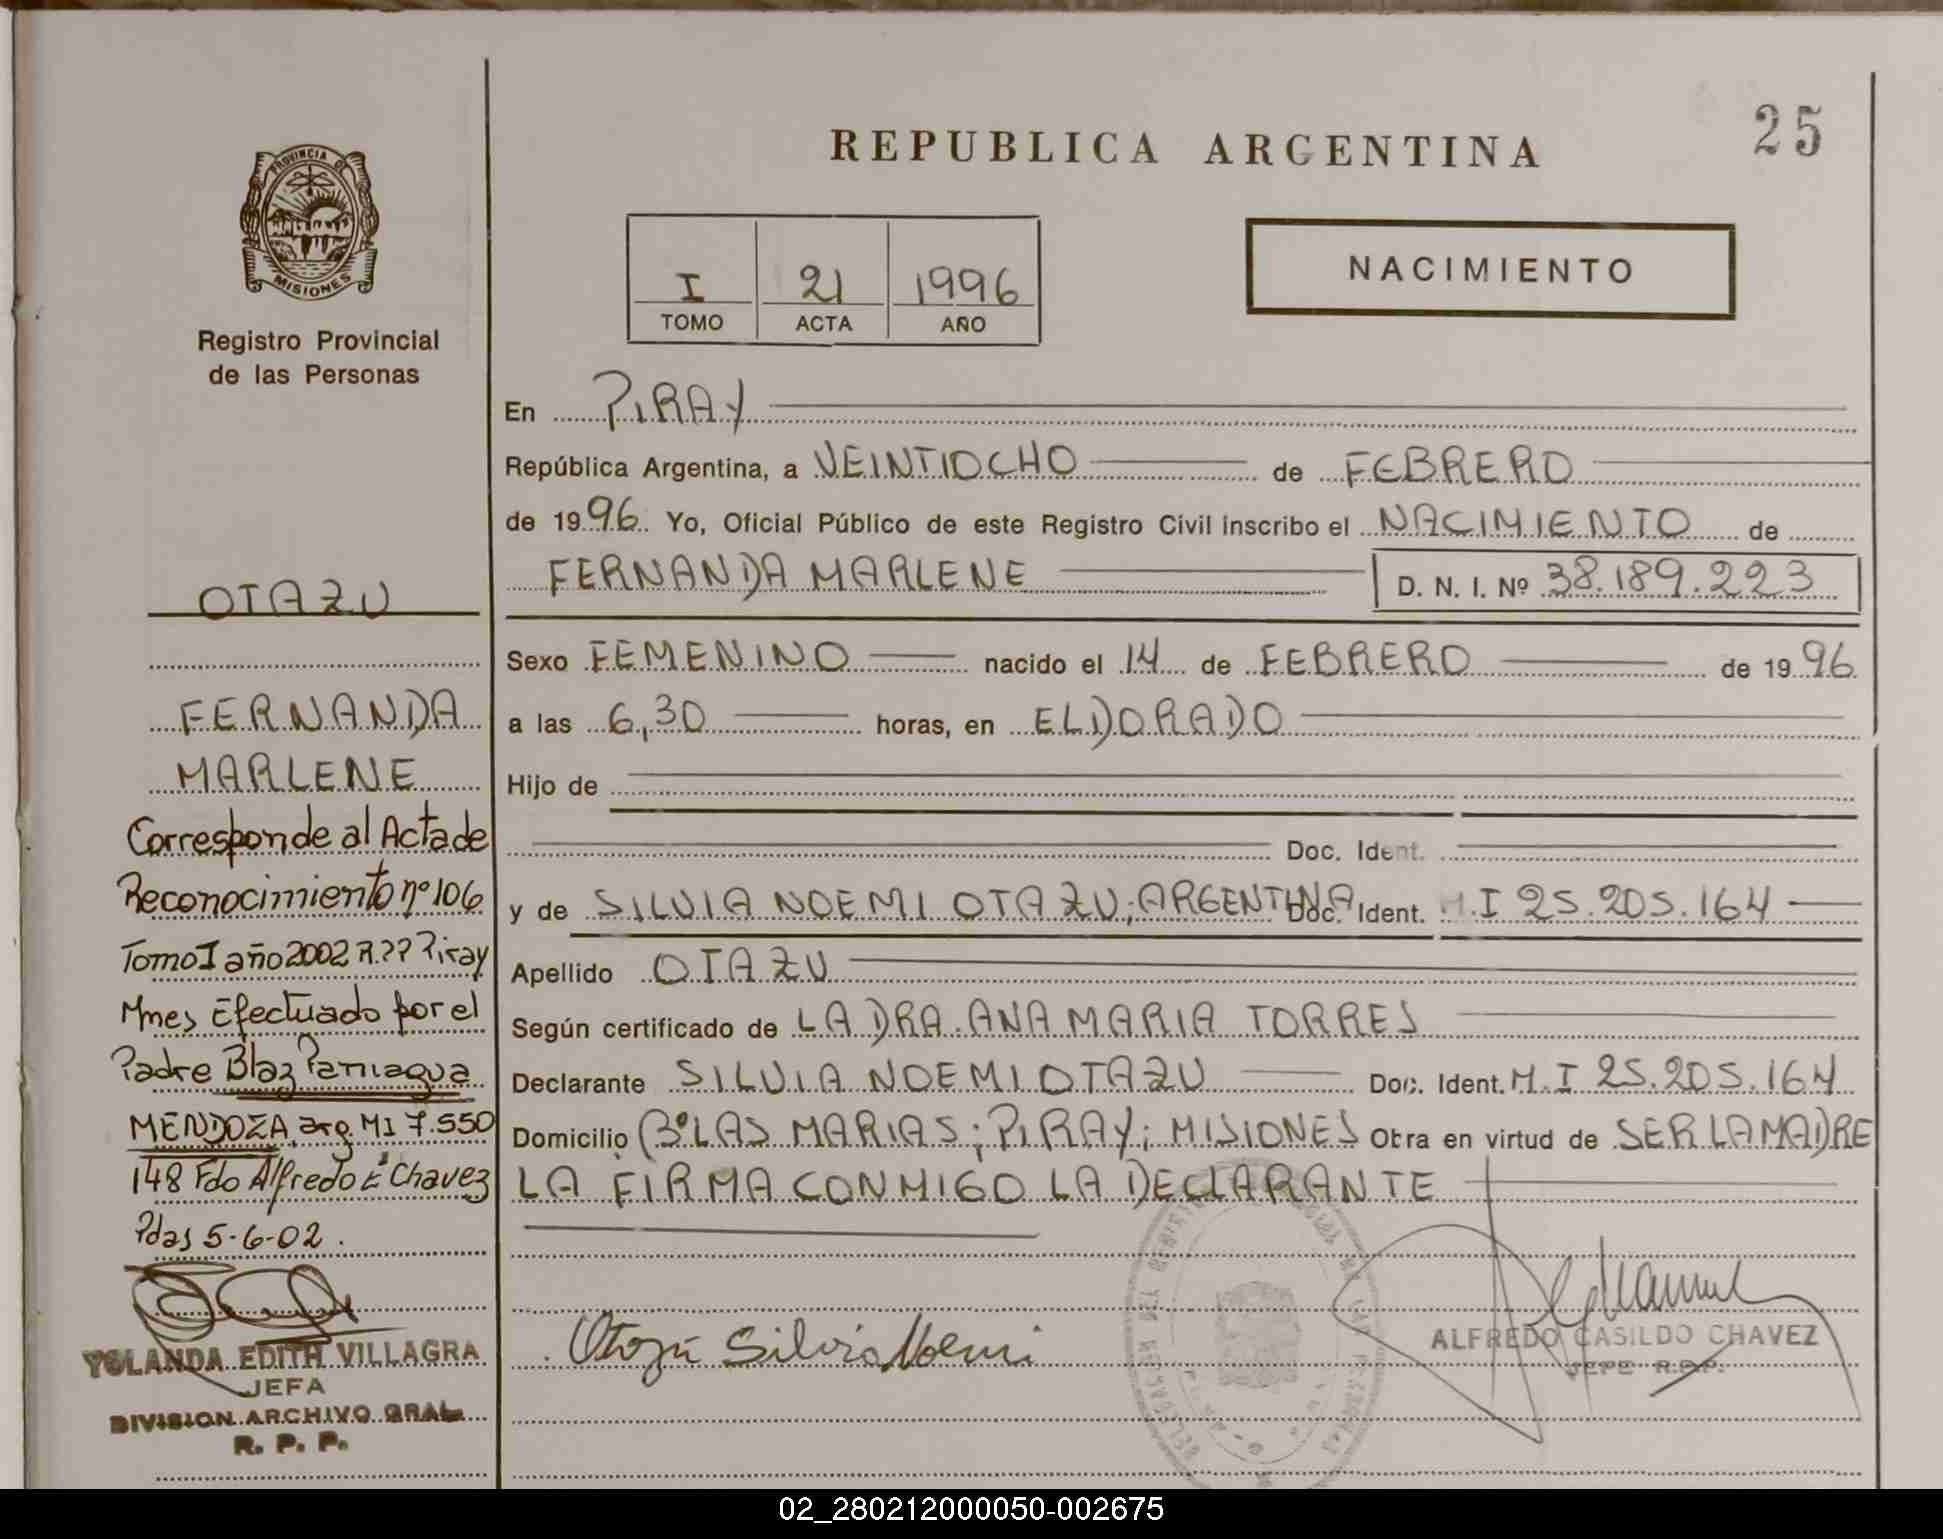 25
REPUBLICA ARGENTINA
PROVINCIA DE
MISIONES
Registro Provincial
de las Personas
I 21 1996
TOMO ACTA AÑO
NACIMIENTO
En PIRAY
República Argentina, a VEINTIOCHO de FEBRERO
de 1996. Yo, Oficial Público de este Registro Civil inscribo el NACIMIENTO de
FERNANDA MARLENE D. N. I. Nº 38.189.223
Sexo FEMENINO nacido el 14 de FEBRERO de 1996
a las 6,30 horas, en ELDORADO
Hijo de
Doc. Ident.
y de SILVIA NOEMI OTAZU; ARGENTINA Doc. Ident. M.I 25.205.164
Apellido OTAZU
Según certificado de LA DRA. ANA MARIA TORRES
Declarante SILVIA NOEMI OTAZU Doc. Ident. M.I 25.205.164
Domicilio Bº LAS MARIAS; PIRAY; MISIONES Obra en virtud de SER LA MADRE
LA FIRMA CONMIGO LA DECLARANTE
Otazú Silvia Noemi
ALFREDO CASILDO CHAVEZ
JEFE R.P.P.
OTAZU
FERNANDA
MARLENE
Corresponde al Acta de
Reconocimiento nº 106
Tomo I año 2002 R.P.P Piray
Mnes Efectuado por el
Padre Blaz Paniagua
MENDOZA, arg MI 7.550
148 Fdo Alfredo C Chavez
Pdas 5-6-02.
YOLANDA EDITH VILLAGRA
JEFA
DIVISION ARCHIVO GRAL
R. P. P.
02_280212000050-002675